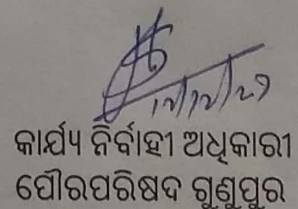 କାର୍ଯ୍ୟ ନିର୍ବାହୀ ଅଧିକାରୀ
ପୌରପରିଷଦ ଗୁଣୁପୁର